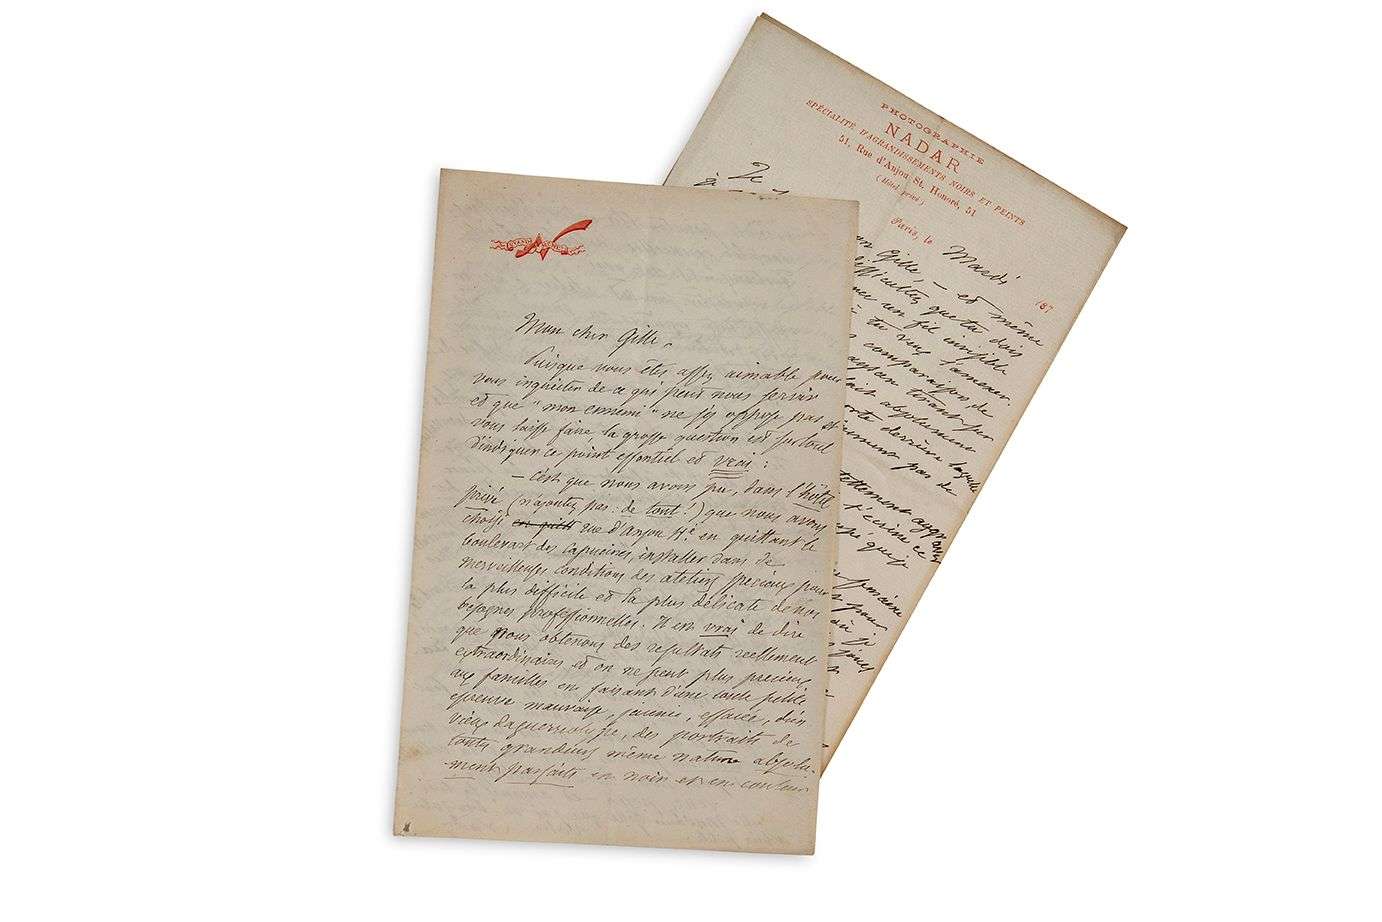 Mon cher Gille,
Puisque vous êtes assez aimable pour
vous inquiéter de ce qui peut nous servir
et que "mon ennemi" ne s'y oppose pas et
vous laisse faire, la grosse question est surtout
d'indiquer ce point essentiel et vrai :
— C'est que nous avons pu, dans l'hôtel
privé (n'ajoutez pas : de tout !) que nous avons
choisi rue d'Anjou St H. en quittant le
boulevart des Capucines, installer dans de
merveilleuses conditions des ateliers spéciaux pour
la plus difficile et la plus délicate de nos
besognes professionnelles. Il est vrai de dire
que nous obtenons des résultats réellement
extraordinaires et on ne peut plus précieux
aux familles en faisant d'une carte petite
épreuve mauvaise, jaunie, effacée, d'un
vieux daguerréotype, des portraits de
toutes grandeurs même nature absolu-
ment parfaits en noir et en couleur
PHOTOGRAPHIE
NADAR
SPÉCIALITÉ D'AGRANDISSEMENTS NOIRS ET PEINTS
51, Rue d'Anjou St. Honoré, 51
(Hôtel privé)
Paris, le Mardi 187
Je
Gille, — et même
difficultés que tu dois
un fil invisible
tu veux l'amener.
comparaison, de
paysan tirant sur
absolument
porte derrière laquelle
pas de
tellement
l'écrire ce
que je
pour
où je